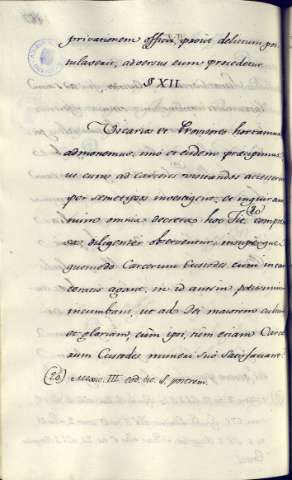 privationem officii, prout delictum pos
tulaverit, adversus eum procedetur.
§ XII.
Vicarios et Visitatores hortamur
admonemus, imo et eisdem præcipimus
ut cum ad carceres visitandos accesserint
per semetipsos investigent, et inquirant
utrum omnia decreta hoc Tit. compre
sa, diligenter observentur, insuper
quomodo Carcerum Custodes, cum incar
ceratis agant, in id autem potissimum
incumbant, ut ad Dei maiorem cultum
et gloriam, cum ipsi, tum etiam Carce
rum Custodes muneri suo satisfaciant.
(20)
(20) Mexic. III. eod. tit. §. postrem.